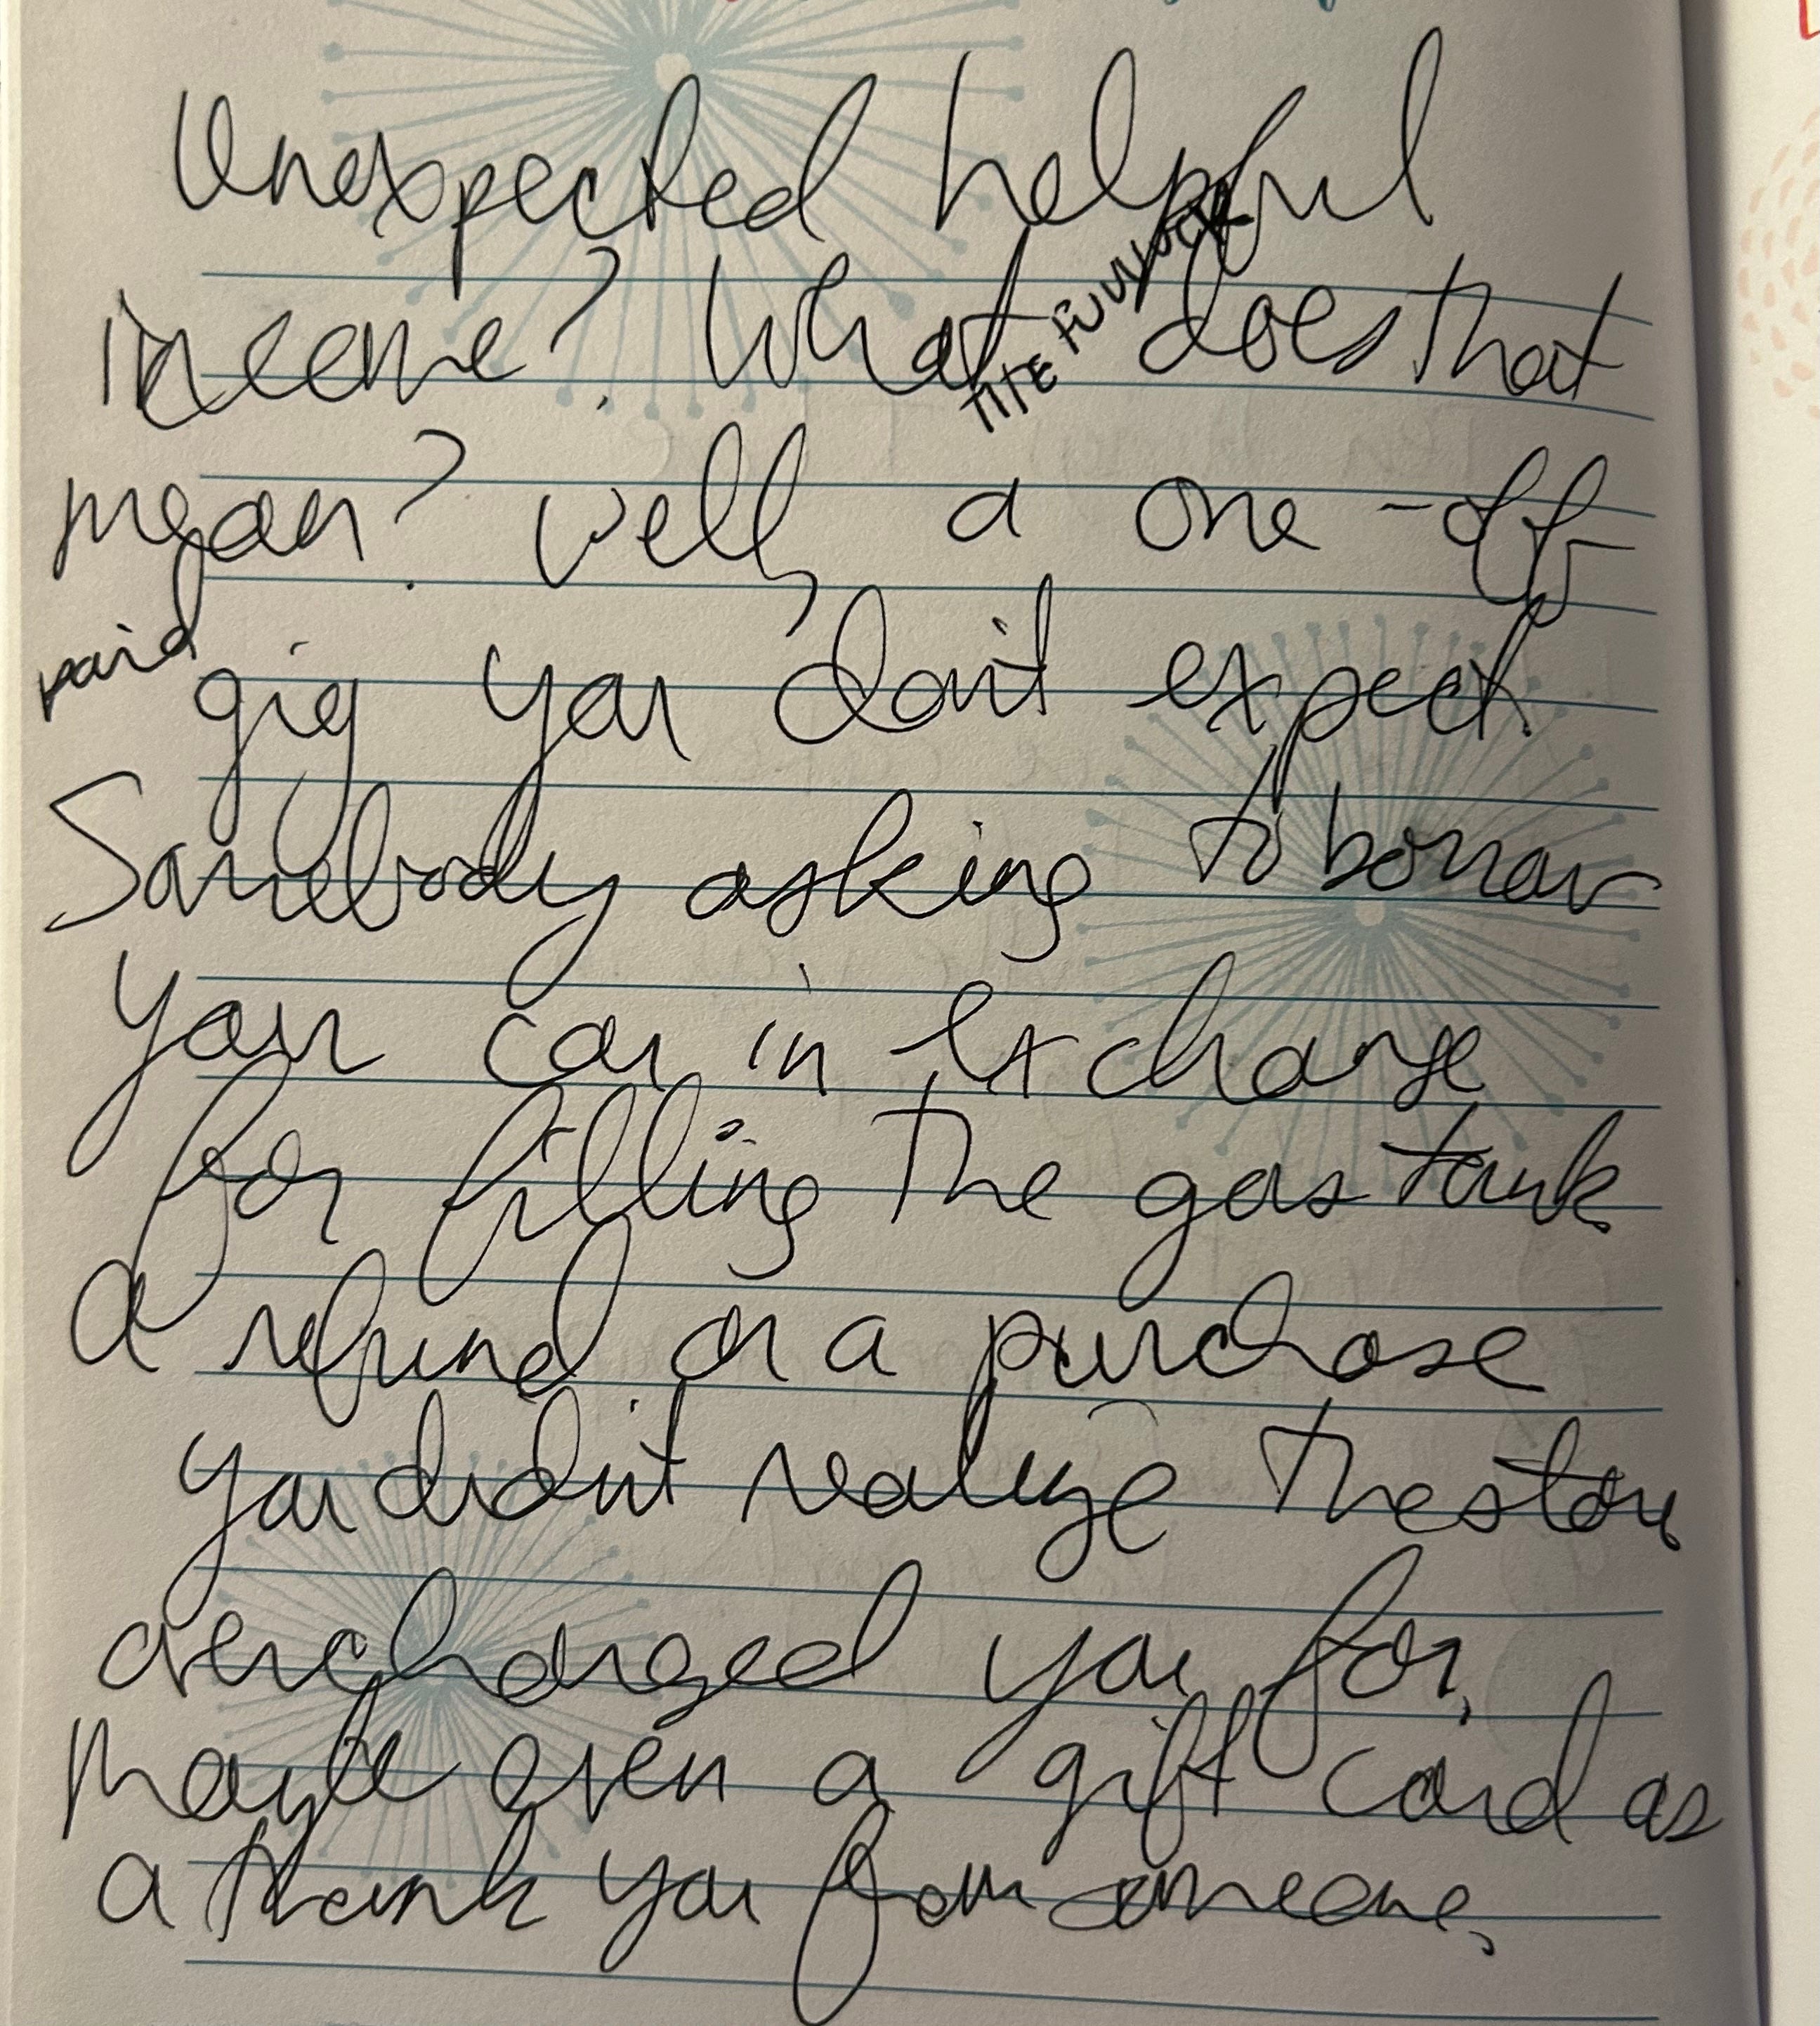 Unexpected helpful
income? What does that
mean? Well, a one-off
paid gig you don't expect.
Somebody asking to borrow
your car in exchange
for filling the gas tank,
a refund on a purchase
you didn't realize the store
overcharged you for,
maybe even a gift card as
a thank you from someone.